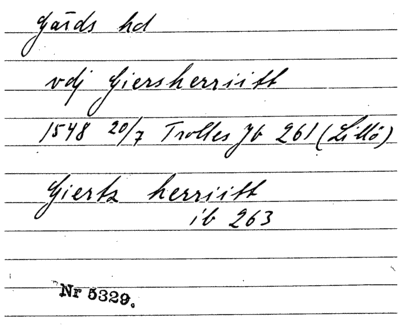 Gärds hd
vdj Giersherriitt
1548 20/7 Trolles Jb 261 (Lillö)
Giertz herriitt
ib 263
Nr 5329.